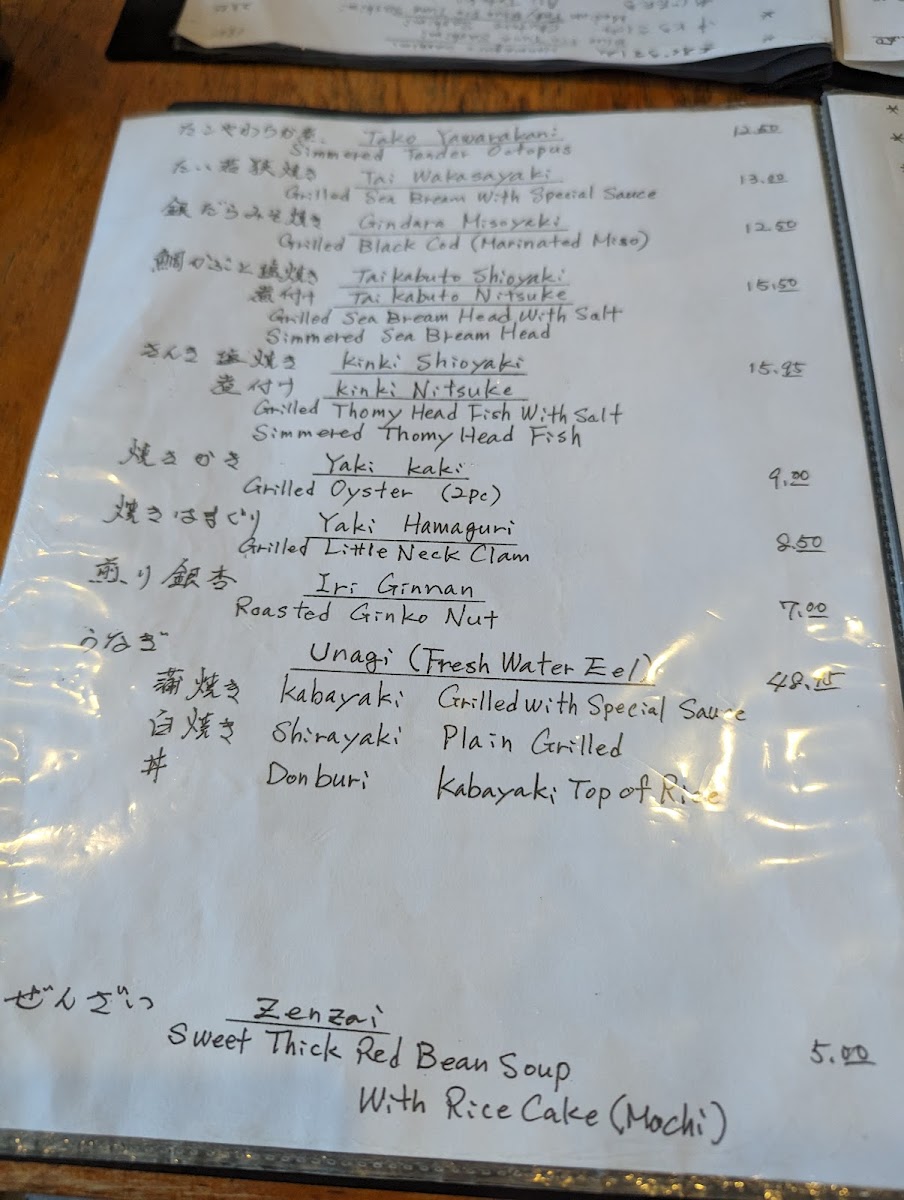 たこやわらか煮 Tako Yawarakani 12.50
Simmered Tender Octopus
たい若狭焼き Tai Wakasayaki 13.00
Grilled Sea Bream With Special Sauce
銀だらみそ焼き Gindara Misoyaki 12.50
Grilled Black Cod (Marinated Miso)
鯛かぶと塩焼き Tai kabuto Shioyaki
煮付け Tai kabuto Nitsuke 15.50
Grilled Sea Bream Head With Salt
Simmered Sea Bream Head
きんき塩焼き Kinki Shioyaki 15.95
煮付け Kinki Nitsuke
Grilled Thorny Head Fish With Salt
Simmered Thorny Head Fish
焼きかき Yaki kaki 9.00
Grilled Oyster (2pc)
焼きはまぐり Yaki Hamaguri 8.50
Grilled Little Neck Clam
煎り銀杏 Iri Ginnan 7.00
Roasted Ginko Nut
うなぎ Unagi (Fresh Water Eel) 48.15
蒲焼き Kabayaki Grilled with Special Sauce
白焼き Shirayaki Plain Grilled
丼 Donburi Kabayaki Top of Rice
ぜんざい Zenzai 5.00
Sweet Thick Red Bean Soup
With Rice Cake (Mochi)